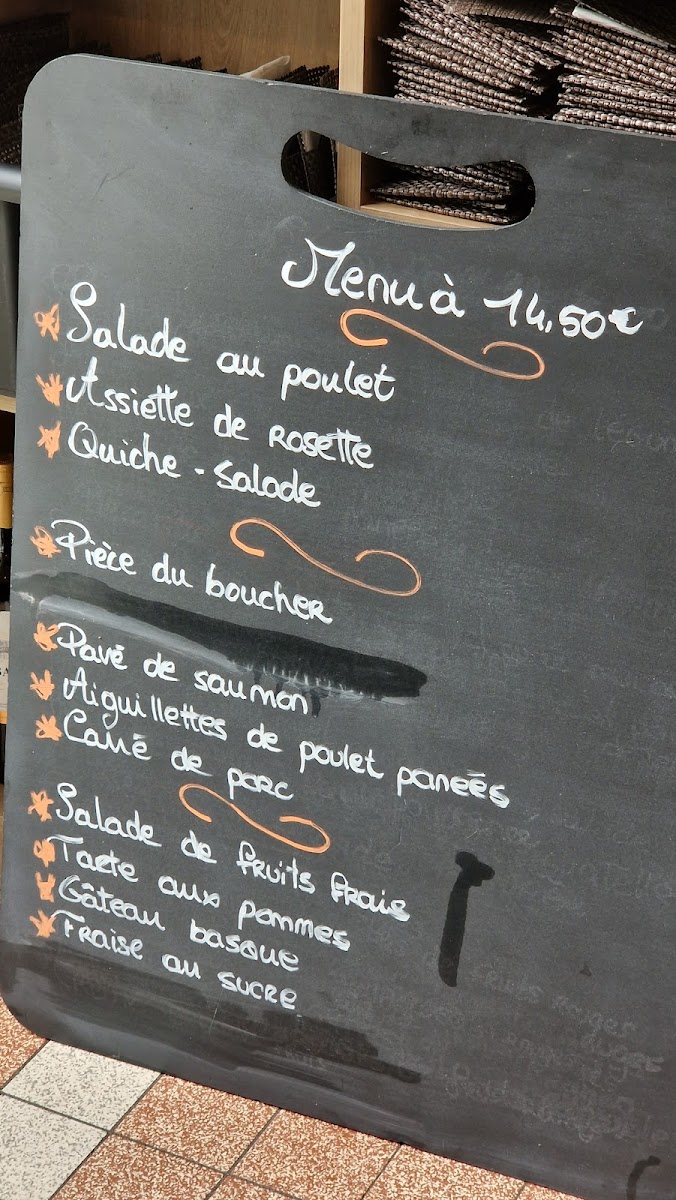 Menu à 14,50€
Salade au poulet
Assiette de Rosette
Quiche - Salade
Pièce du boucher
Pavé de saumon
Aiguillettes de poulet paneés
Carré de porc
Salade de fruits frais
Tarte aux pommes
Gâteau basque
Fraise au sucre